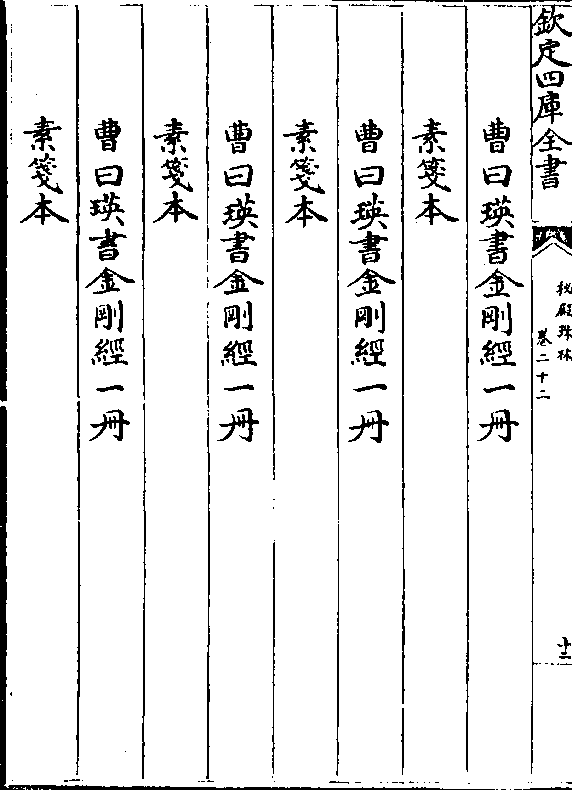 欽定四庫全書
秘殿珠林
卷二十二
十二
曹曰瑛書金剛經一冊
素箋本
曹曰瑛書金剛經一冊
素箋本
曹曰瑛書金剛經一冊
素箋本
曹曰瑛書金剛經一冊
素箋本